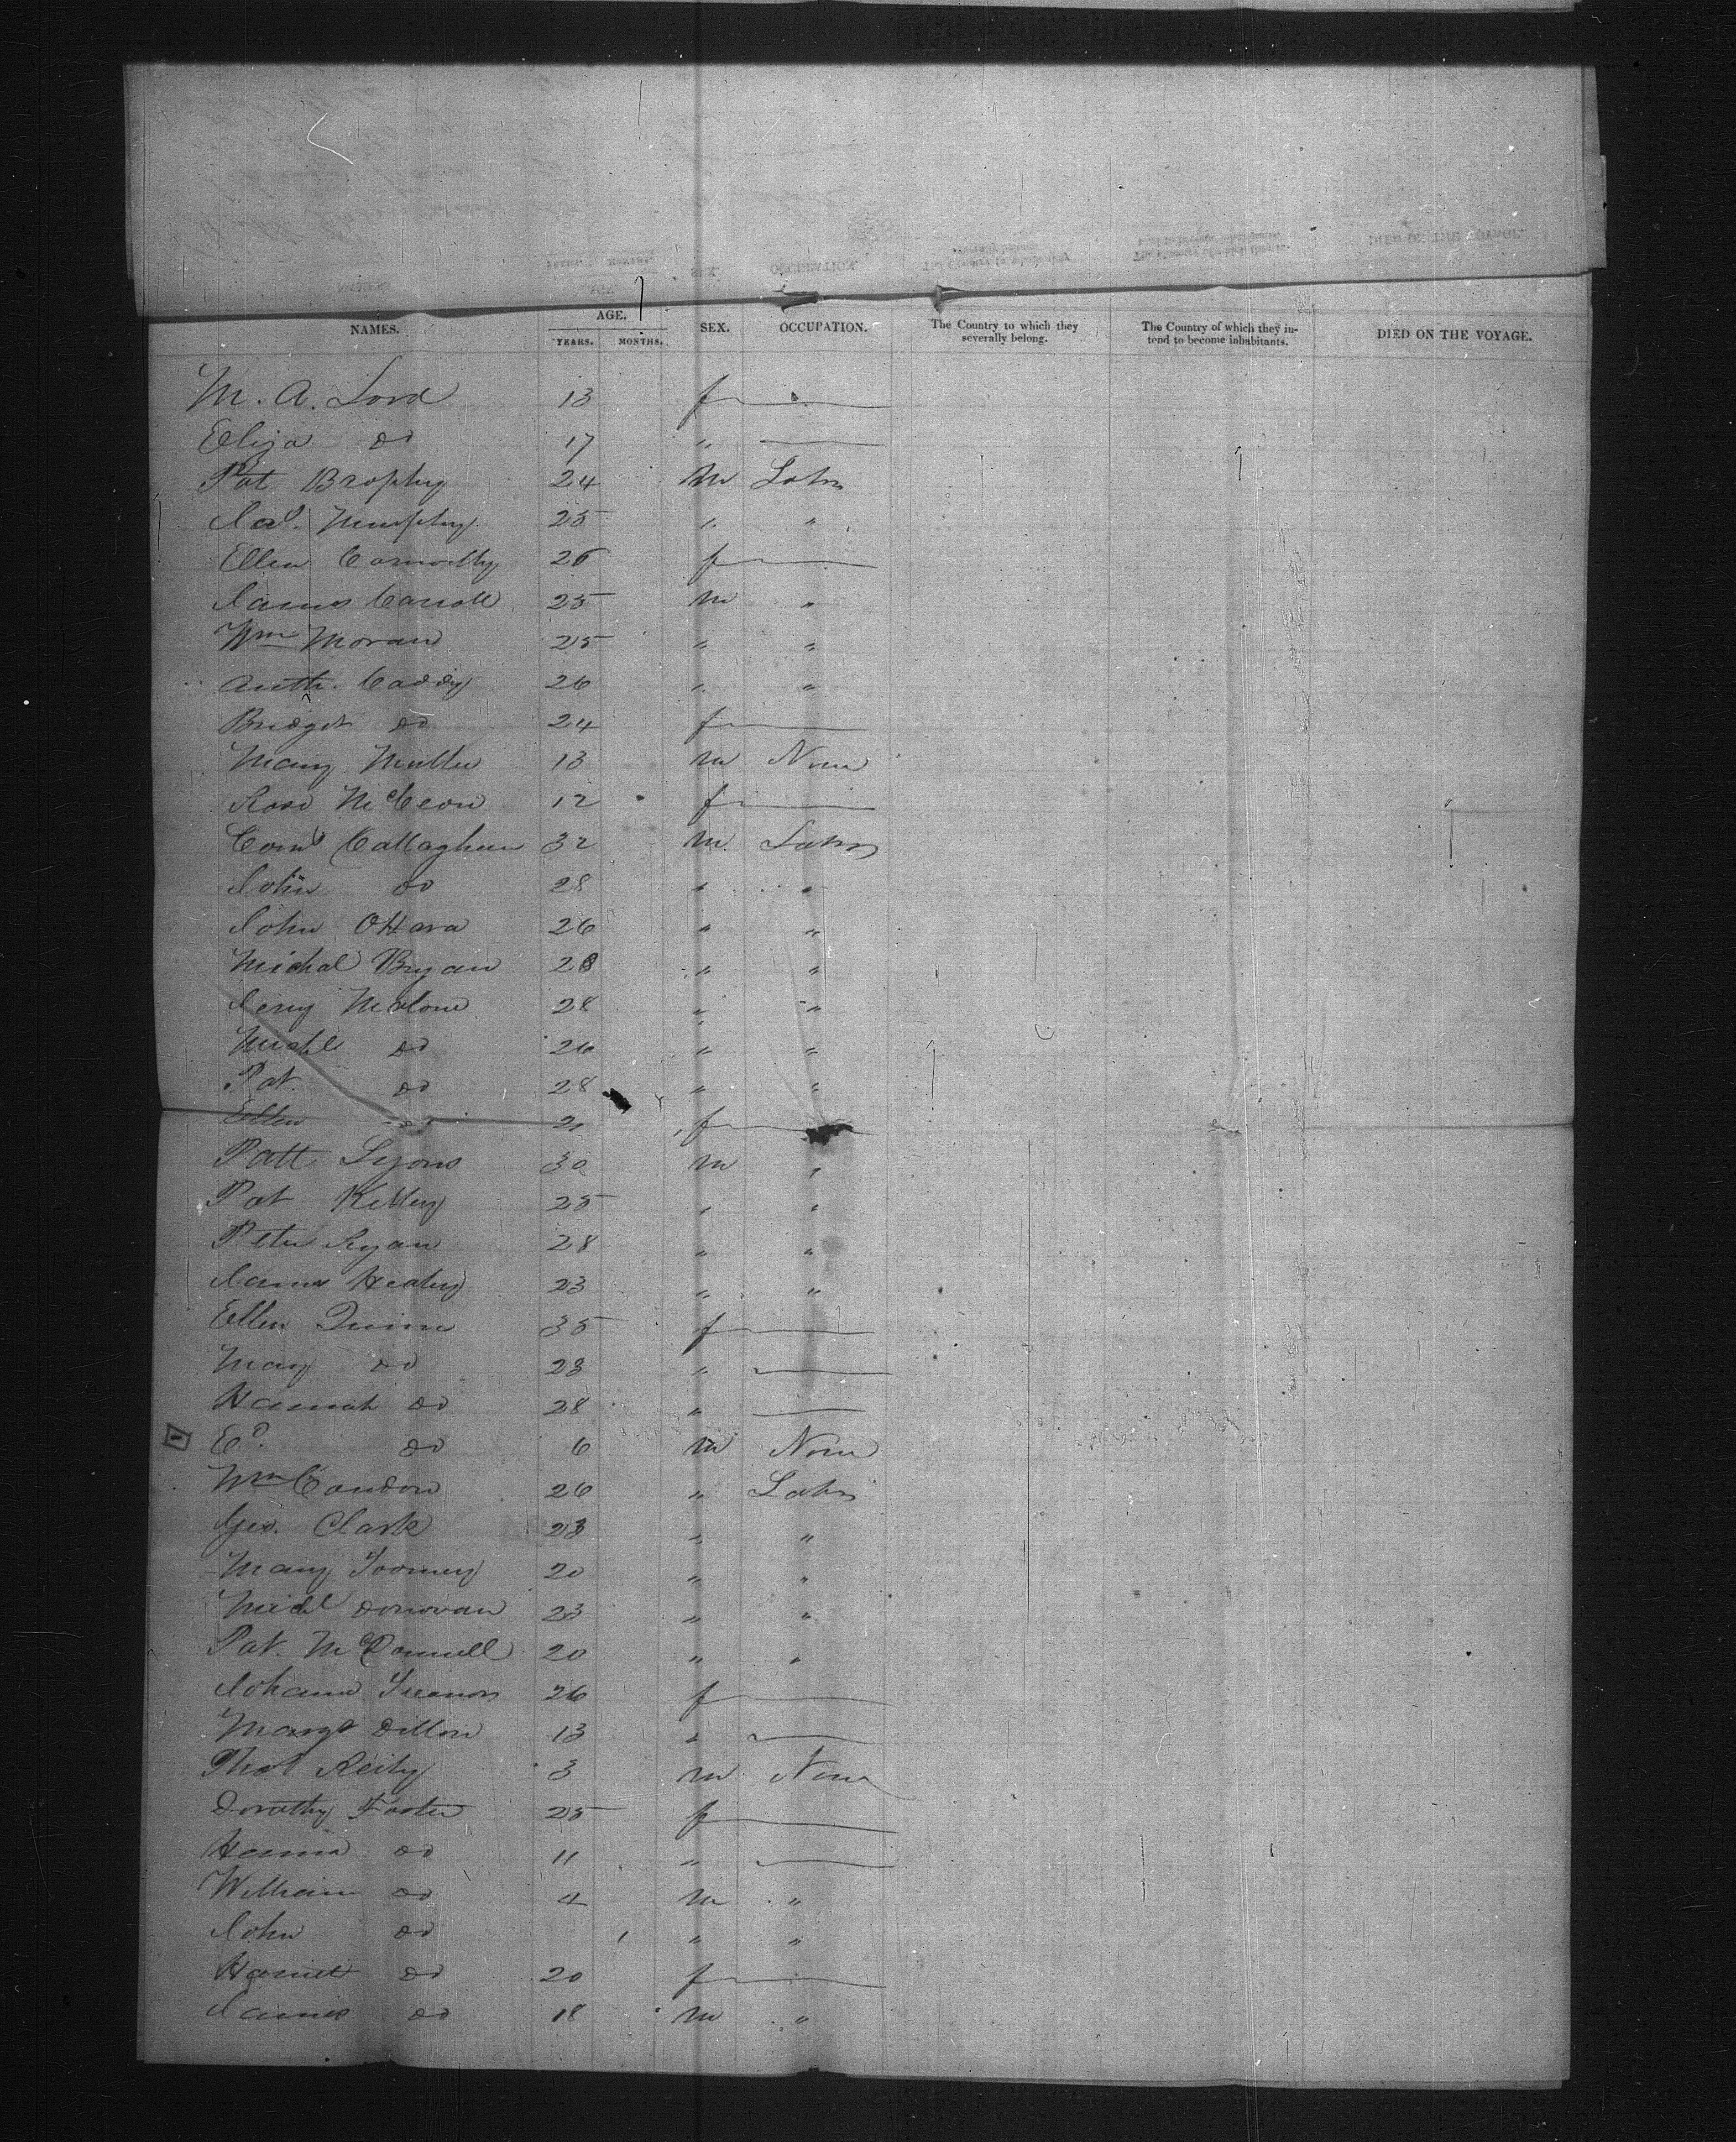 NAMES. AGE. YEARS. MONTHS. SEX. OCCUPATION. The Country to which they severally belong. The Country of which they intend to become inhabitants. DIED ON THE VOYAGE.
M. A. Lord 13 f
Eliza do 17 "
Pat Brophy 24 m Labr
Jas. Murphy 25 " "
Ellen Connolly 26 f
James Carroll 25 m "
Wm Moran 25 " "
Anth. Caddy 26 " "
Bridget do 24 f
Mary Muller 13 m None
Rose McCeon 12 f
Corns Callaghan 32 m Labr
John do 28 " "
John OHara 26 " "
Michal Bryan 28 " "
Jerry Malone 28 " "
Michl do 26 " "
Pat. do 28 " "
Ellen do 21 f
Patt Lyons 30 m "
Pat Kelley 25 " "
Peter Ryan 28 " "
James Healey 23 " "
Ellen Quinn 35 f
Mary do 23 "
Hannah do 28 "
Ed. do 6 m None
Wm Condon 26 " Labr
Geo. Clark 23 " "
Mary Toomey 20 " "
Michl Donovan 23 " "
Pat. McDonnell 20 " "
Johanna 26 f
Margt Dillon 13 "
Thos Reily 3 m None
Dorothy Foster 25 f
Hanna do 11 "
William do 4 m "
John do 1 " "
Harriet do 20 f
James do 18 m "